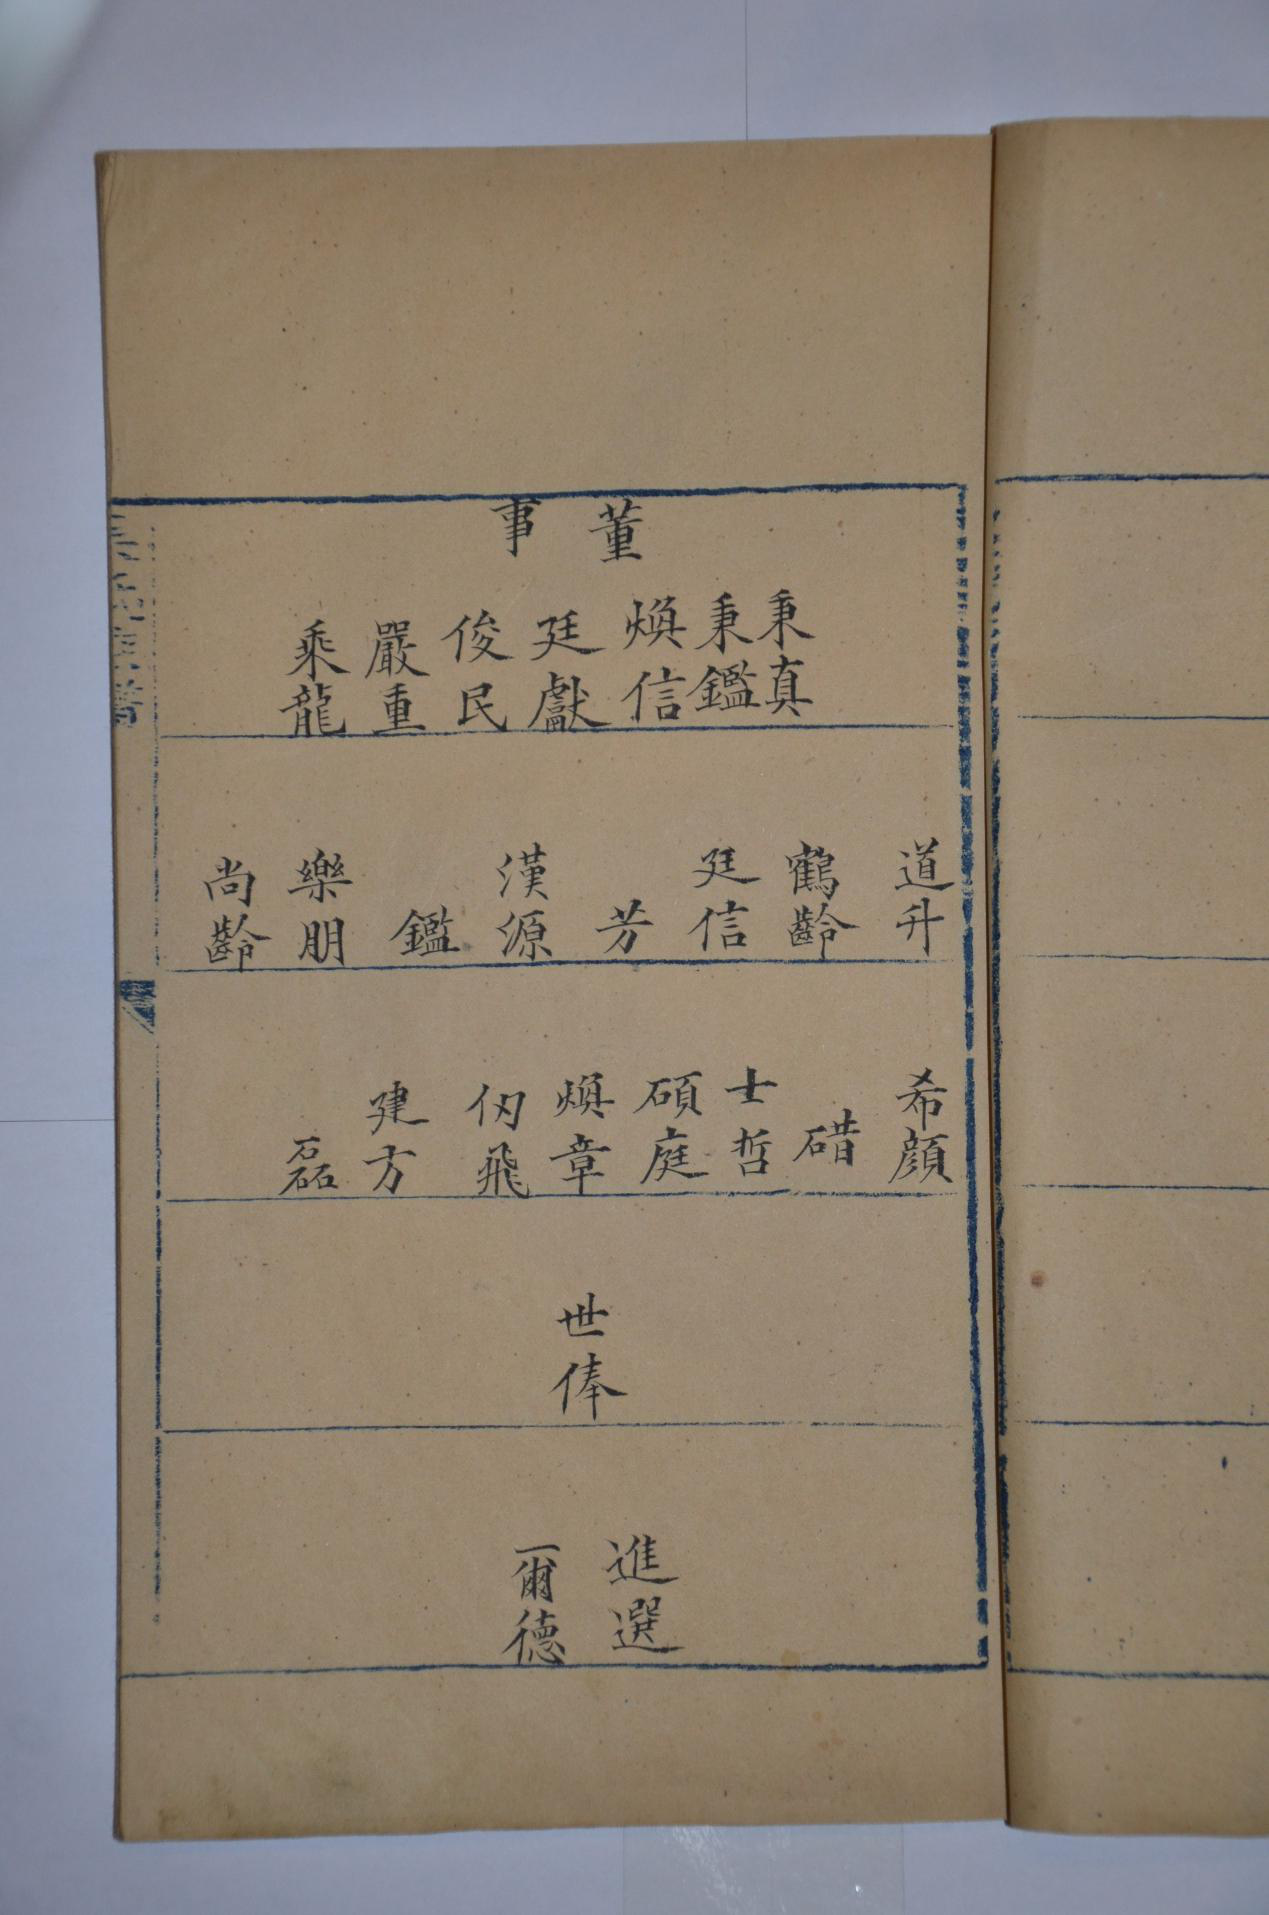 董事
秉真
秉鑑
煥信
廷獻
俊民
嚴重
乘龍
道升
鶴齡
廷信
芳
漢源
鑑
樂朋
尚齡
希顔
碏
士哲
碩庭
煥章
仞飛
建方
磊
世俸
進選
爾德